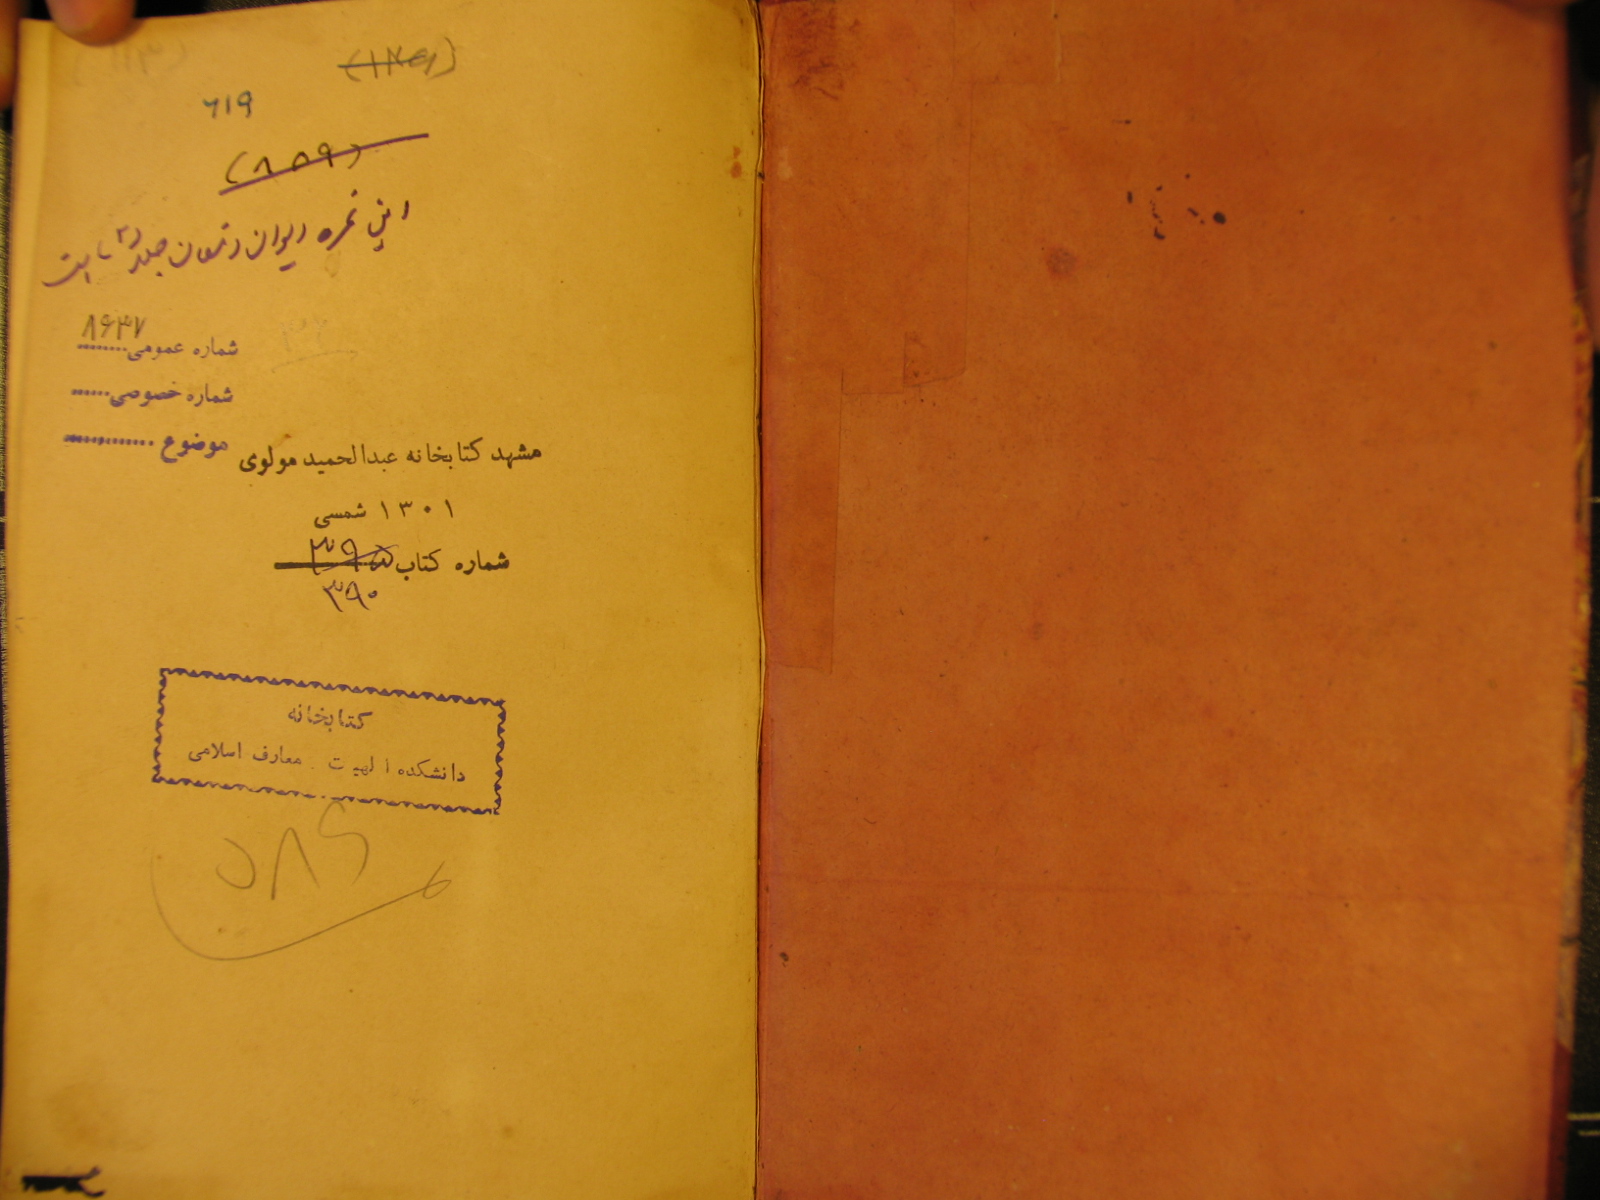 (۱۴۶۱)
۶۱۹
(۸۵۹)
این نمره دیوان جلد ۲ است
۸۶۳۷
شماره عمومی........
شماره خصوصی......
موضوع ..............
مشهد کتابخانه عبدالحمید مولوی
۱۳۰۱ شمسی
شماره کتاب ۳۹۵
۳۹۰
کتابخانه
دانشکده الهیت معارف اسلامی
۵۸۶